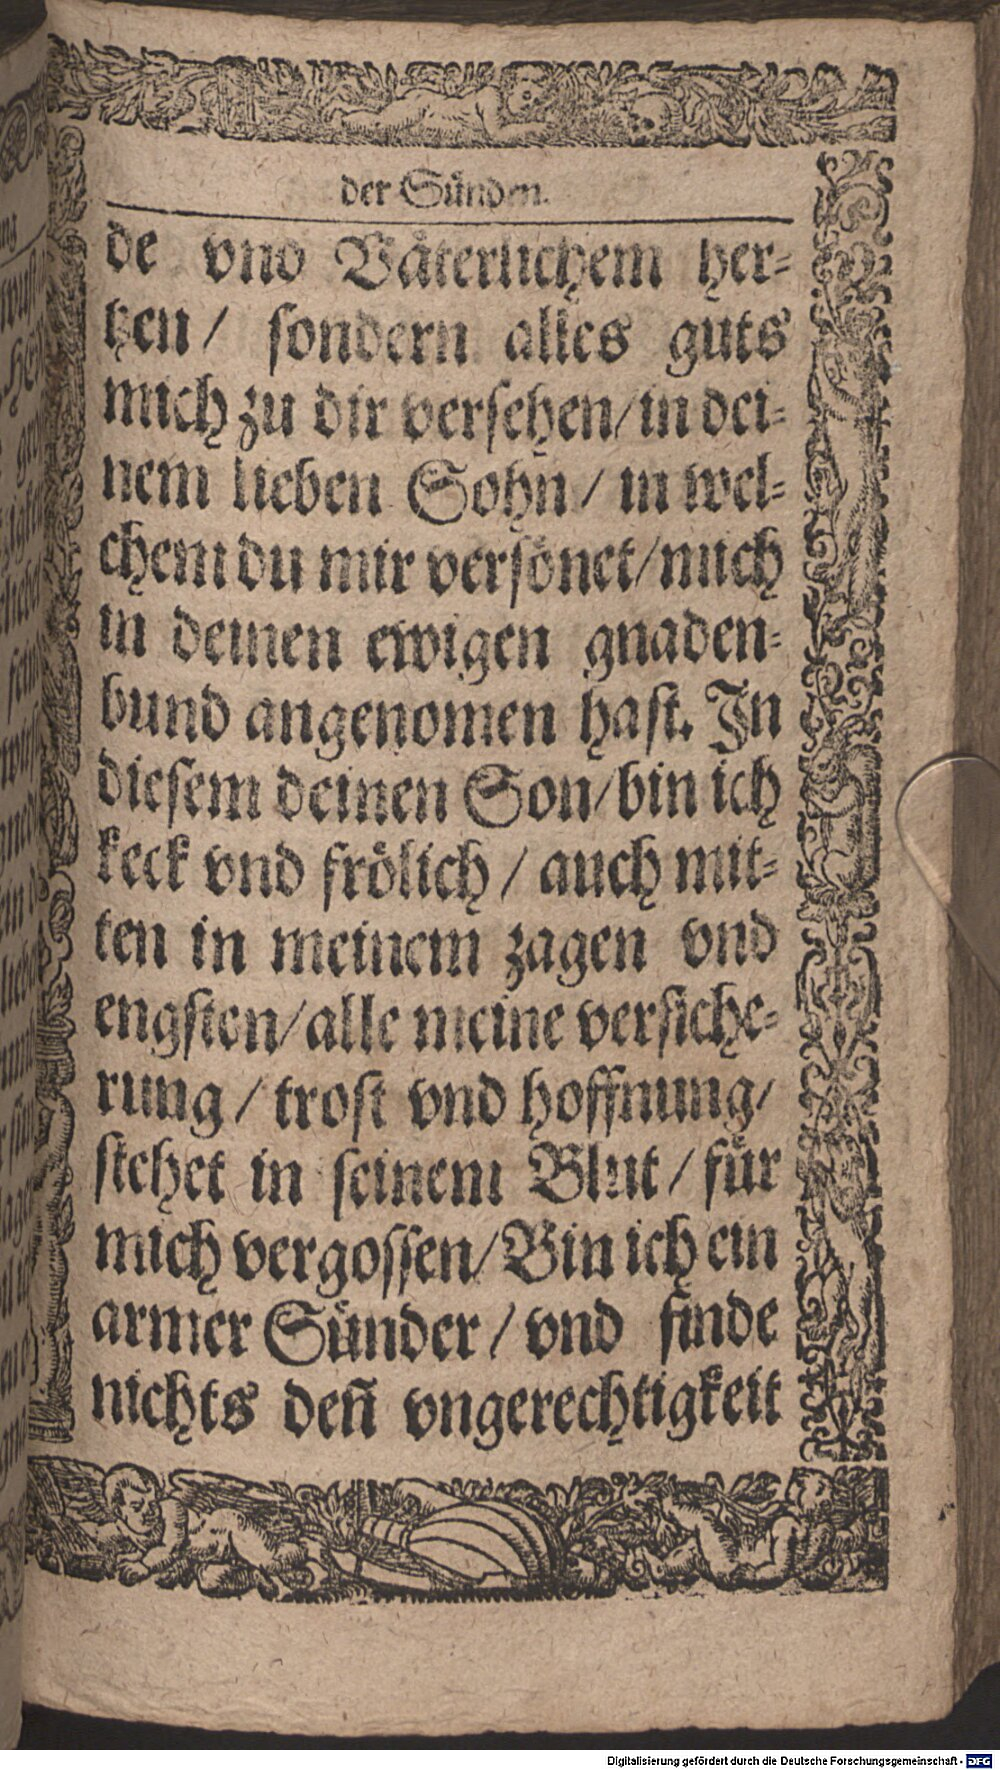 der Sünden.
de vnd Våterlichem her⸗
tzen / sondern alles guts
mich zu dir versehen / in dei⸗
nem lieben Sohn / in wel⸗
chem du mir versönet / mich
in deinen ewigen gnaden⸗
bund angenomen hast. In
diesem deinen Son / bin ich
keck vnd frölich / auch mit⸗
ten in meinem zagen vnd
engsten / alle meine versiche⸗
rung / trost vnd hoffnung /
stehet in seinem Blut / für
mich vergossen / Bin ich ein
armer Sünder / vnd finde
nichts deñ vngerechtigkeit
Digitalisierung gefördert durch die Deutsche Forschungsgemeinschaft - DFG